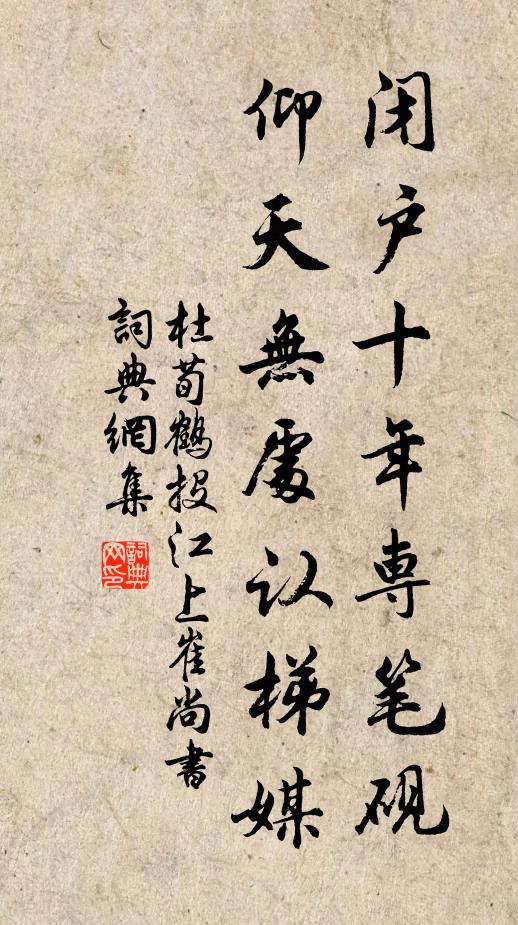 闭户十年専笔砚
仰天無處认梯媒
杜荀鶴投江上崔尚書
詞典網集
詞典网印